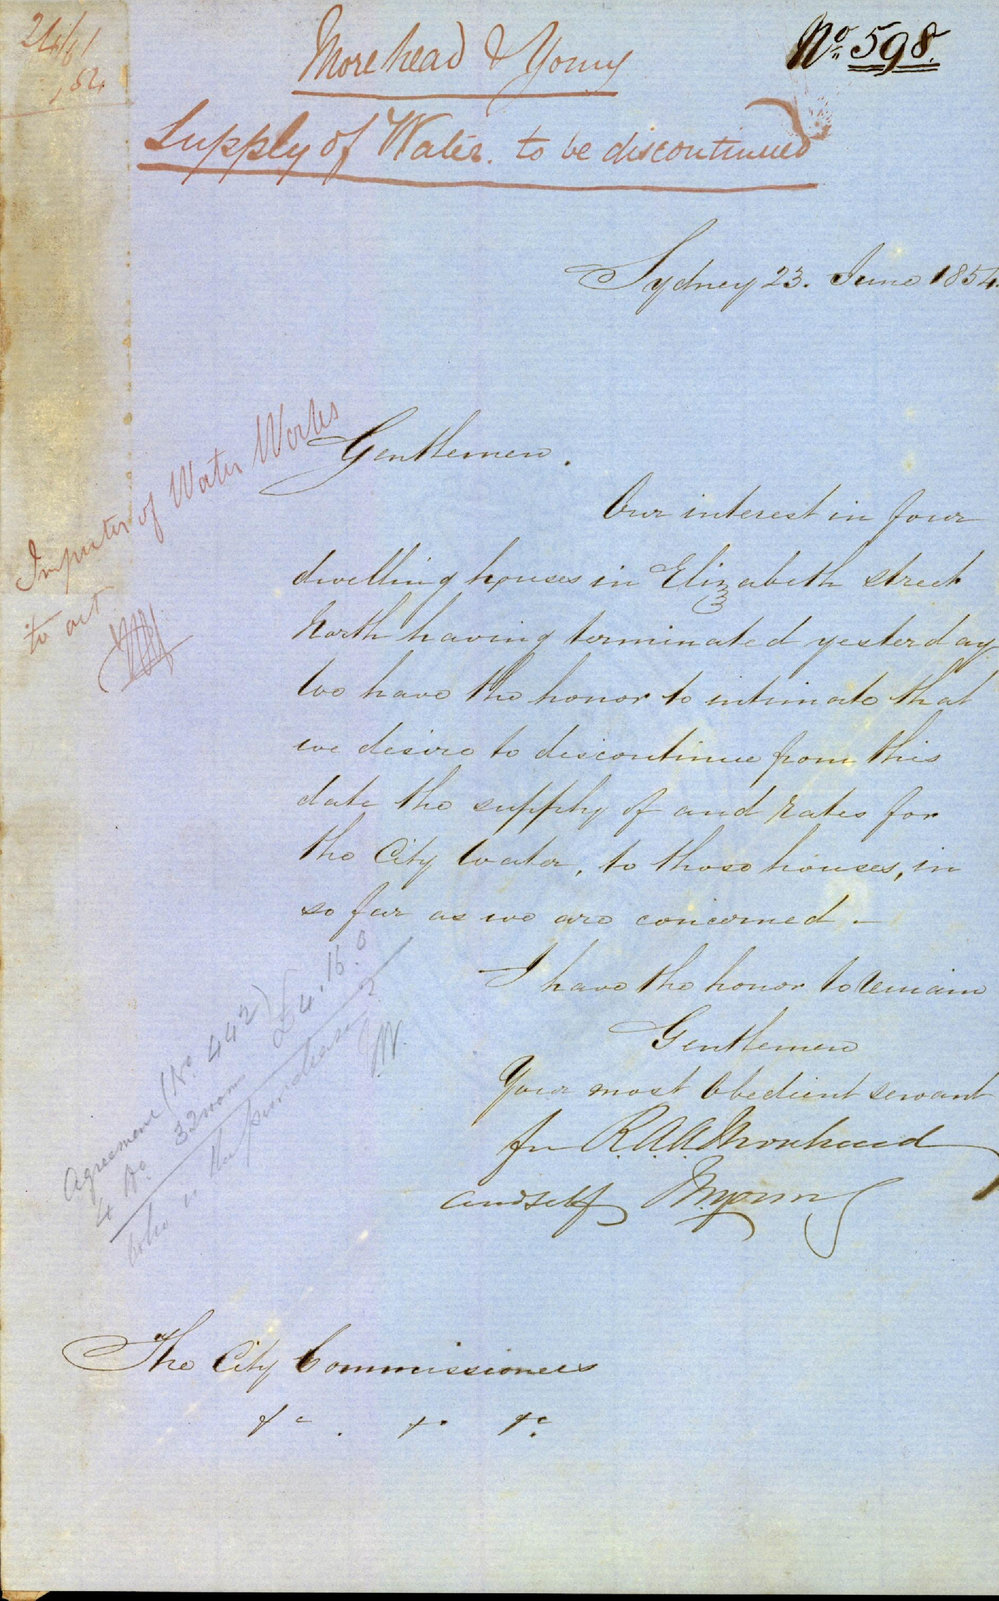 24/6/54
Morehead & Young
No. 598.
Supply of Water to be discontinued
Sydney 23. June 1854.
Gentlemen.
Our interest in four
dwelling houses in Elizabeth street
North having terminated yesterday
We have the honor to intimate that
we desire to discontinue from this
date the supply of and rates for
the City Water, to those houses, in
so far as we are concerned.—
I have the honor to remain
Gentlemen
Your most Obedient servant
for R.A.A. Morehead
and self M. Young
Inspector of Water Works
to act
Agreement (No. 442) £4.16.0
4 Ho. 32 rooms
who is the purchaser?
The City Commissioners
&c. &c. &c.